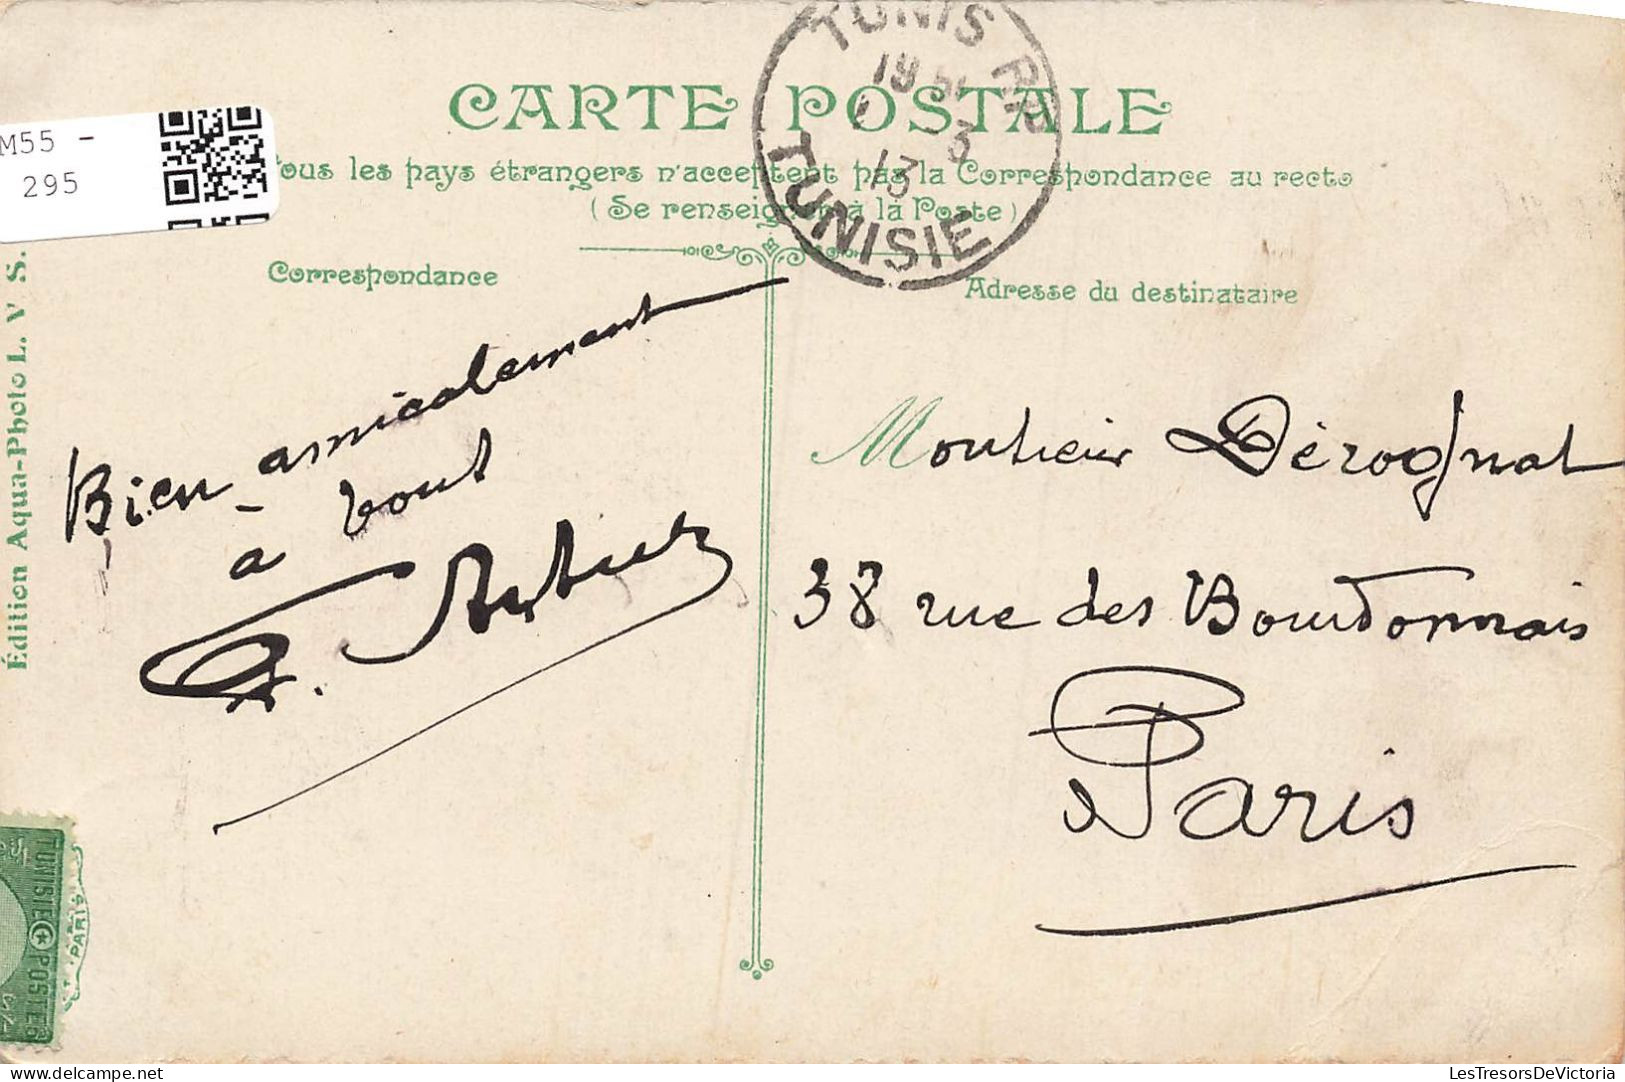 TUNIS R.P
13
TUNISIE
CARTE POSTALE
M55 -
295
Tous les pays étrangers n'acceptent pas la Correspondance au recto
(Se renseigner à la Poste)
Correspondance
Adresse du destinataire
Édition Aqua-Photo L. V S.
Bien amicalement
à vous
Monsieur Dérognat
38 rue des Bourdonnais
Paris
TUNISIE POSTES
PARIS
delcampe.net
LesTresorsDeVictoria